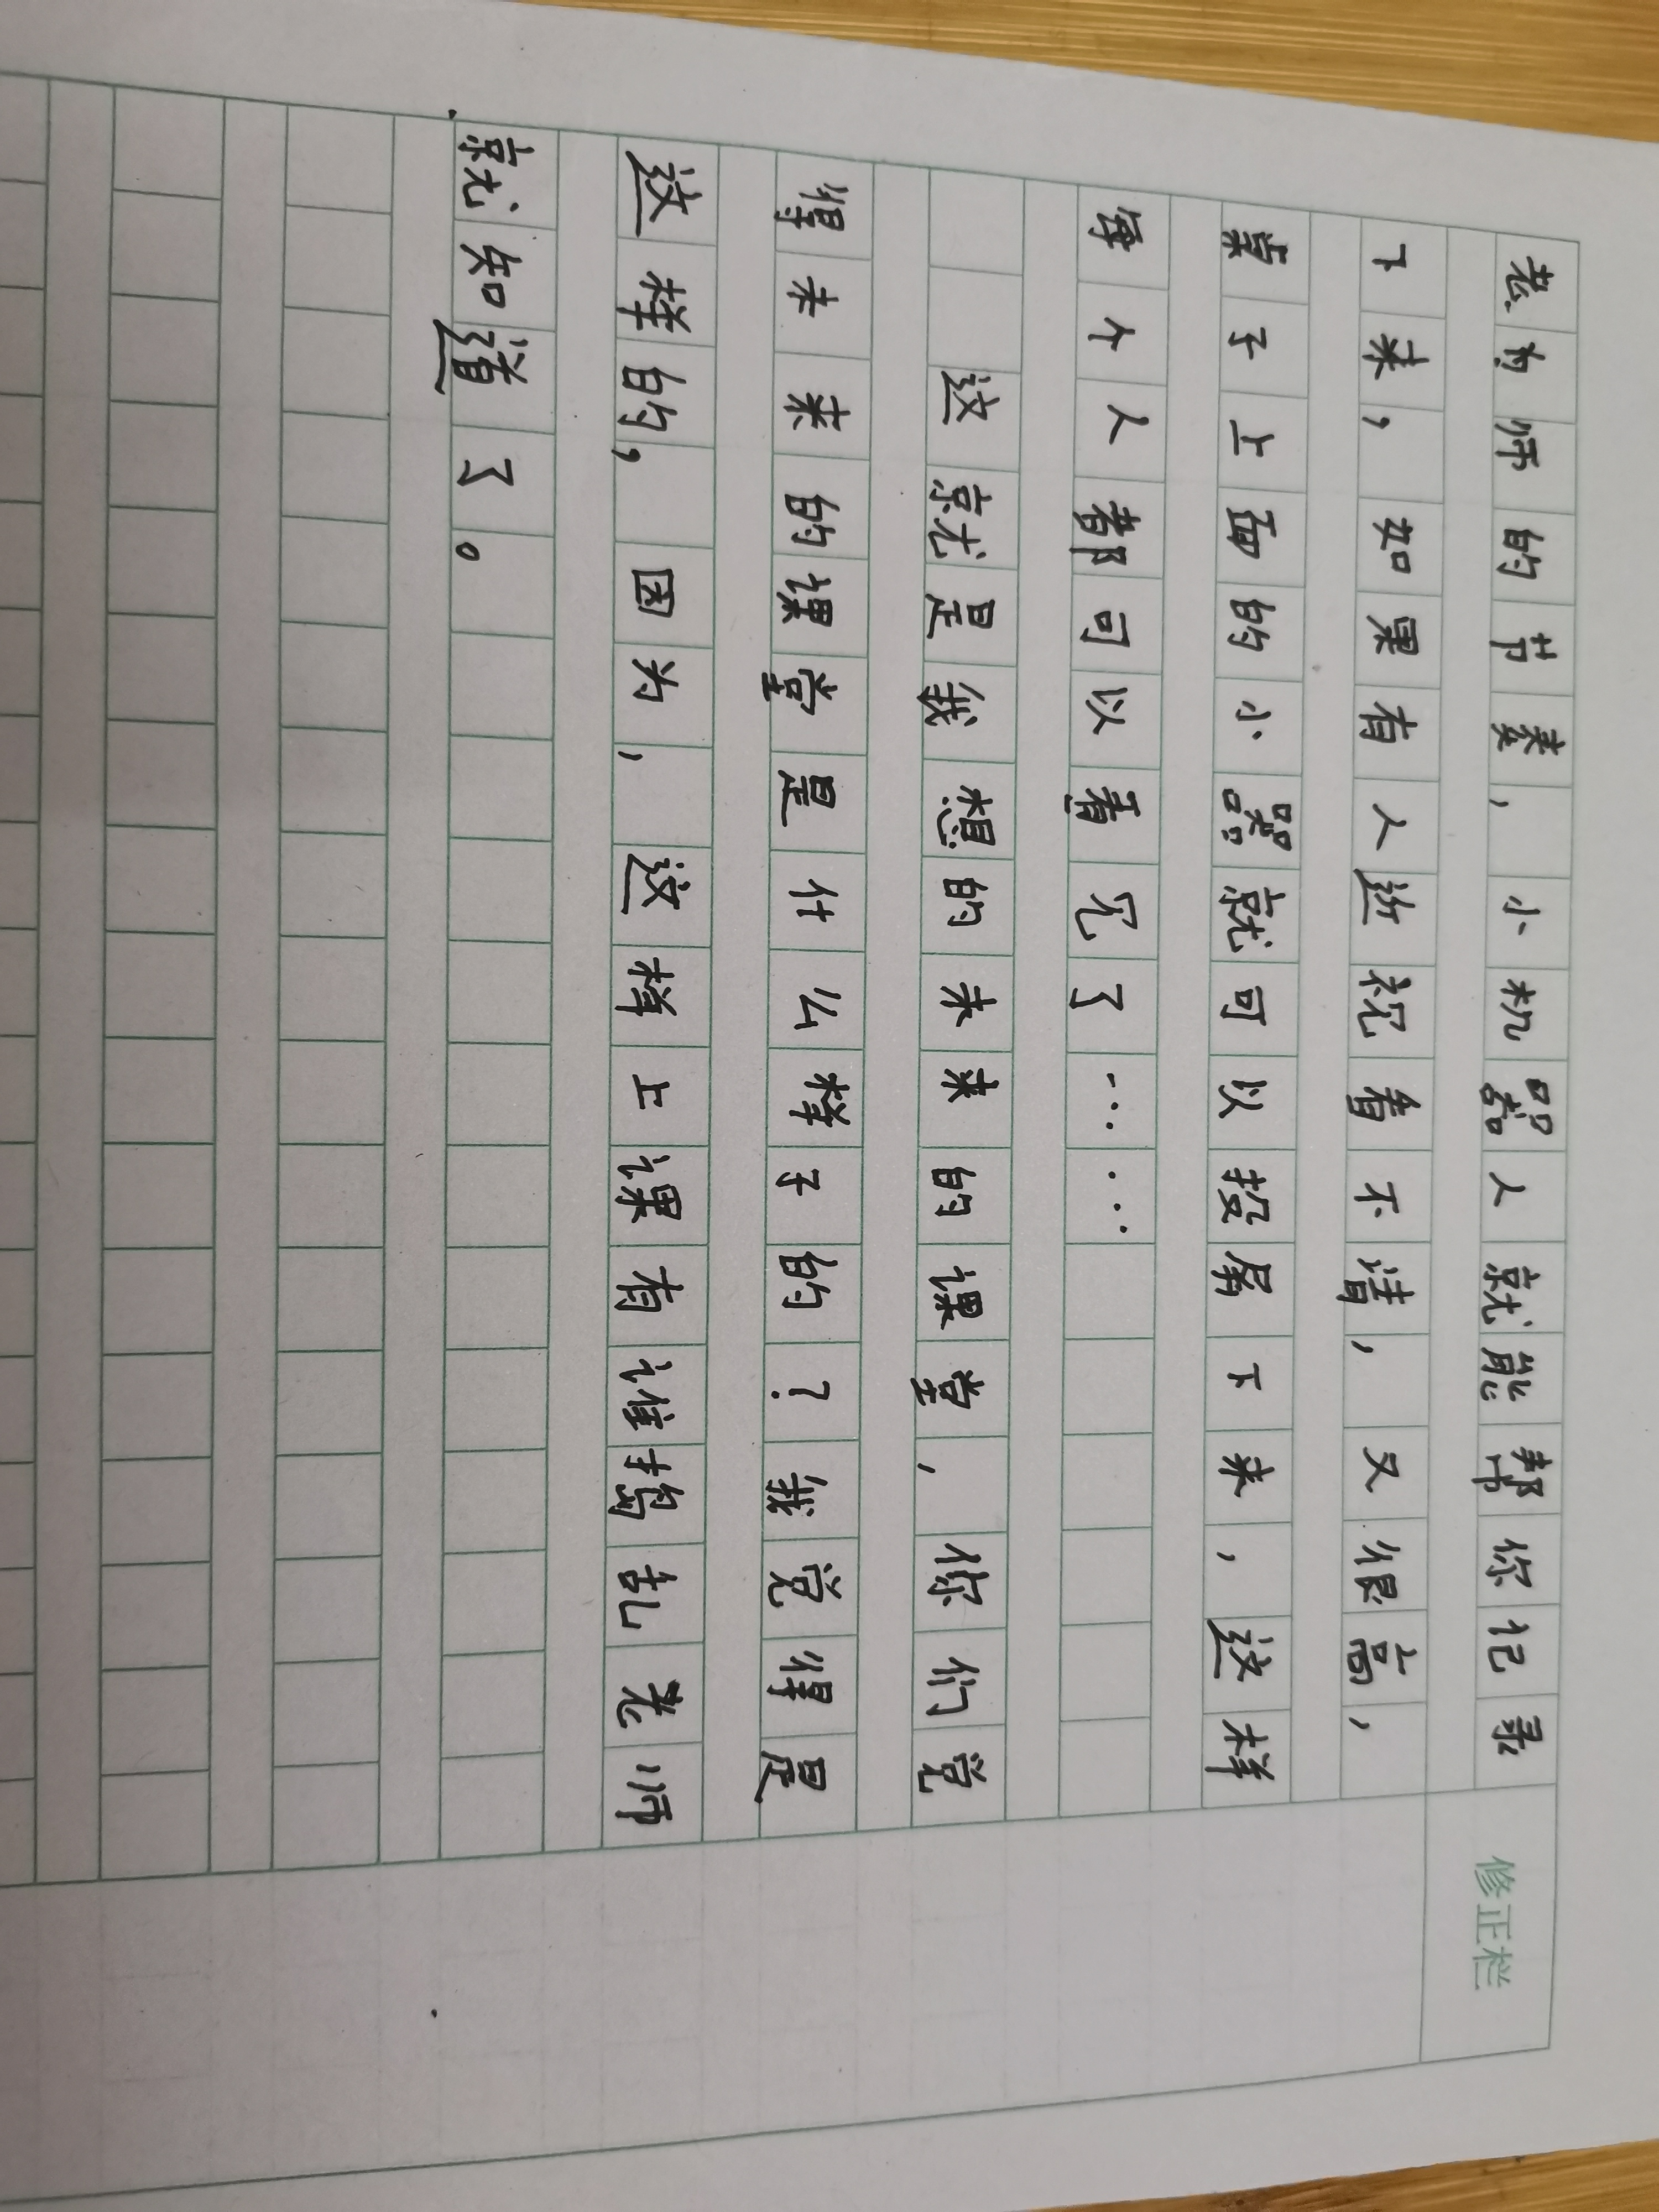 老为师的节奏，小机器人就能帮你记录
下来，如果有人近视看不清，又很高，
桌子上面的小器就可以投屏下来，这样
每个人都可以看见了……
这就是我想的未来的课堂，你们觉
得未来的课堂是什么样子的？我觉得是
这样的，因为，这样上课有谁捣乱老师
就知道了。
修正栏